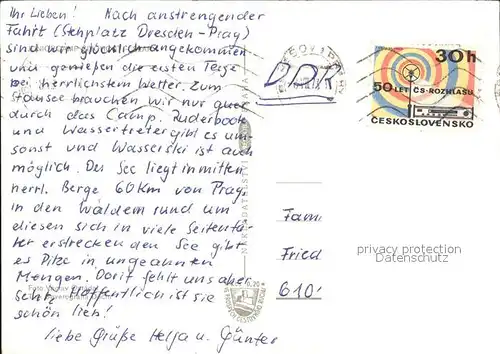 Ihr Lieben! Nach anstrengender
Fahrt (Stehplatz Dresden-Prag)
sind wir glücklich angekommen
und genießen die ersten Tage
bei herrlichstem Wetter. Zum
Stausee brauchen wir nur quer
durch das Camp. Ruderboote
und Wassertreter gibt es um-
sonst und Wasserski ist auch
möglich. Der See liegt inmitten
herrl. Berge 60 km von Prag.
in den Wäldern rund um
diesen sich in viele Seitentä-
ler erstrecken den See gibt
es Pilze in ungeahnten
Mengen. Dorit fehlt uns aber
sehr. Hoffentlich ist sie
schön lieb!
liebe Grüße Helga u. Günter
DDR
30h
50 LET ČS. ROZHLASU
ČESKOSLOVENSKO
Fami
Fried
610
privacy protection
Datenschutz